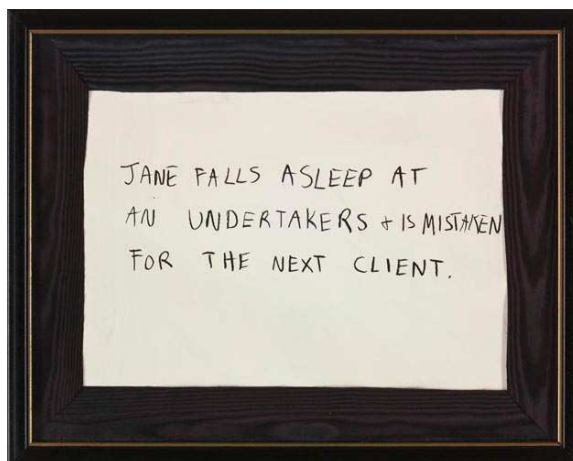 JANE FALLS ASLEEP AT
AN UNDERTAKERS + IS MISTAKEN
FOR THE NEXT CLIENT.